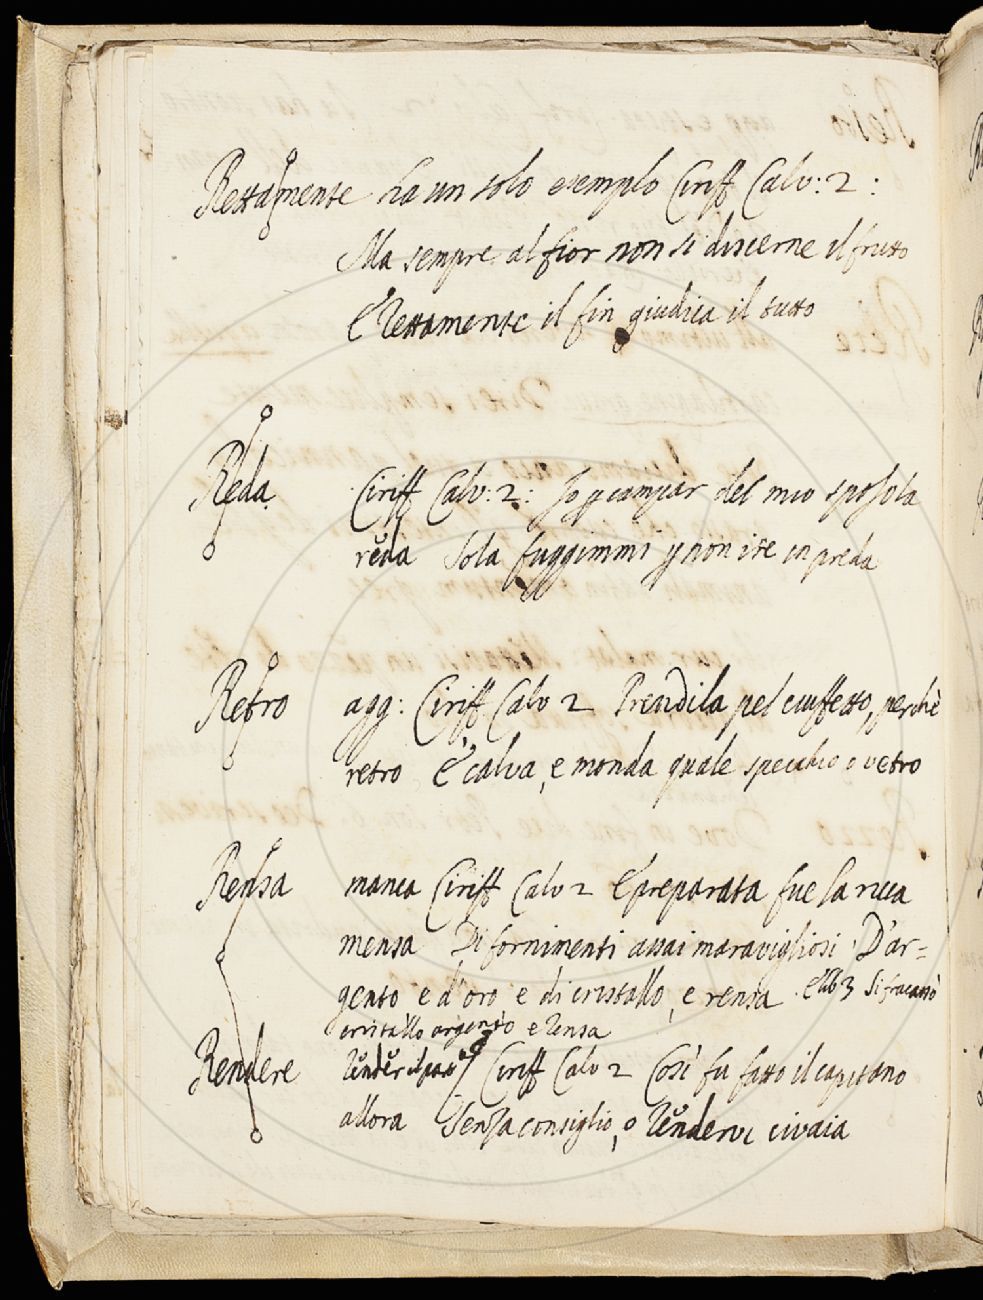 Rettamente ha un solo esemplo Ciriff Calv: 2:
Ma sempre al fior non si discerne il frutto
E Rettamente il fin giudica il tutto
Reda. Ciriff Calv: 2: Io p campar del mio sposo la
reda Sola fuggimmi p non ire in preda
Retro agg: Ciriff Calv 2 Prendila pel ciuffetto, perchè
retro È calva, e monda quale specchio o vetro
Rensa manca Ciriff Calv 2 E preparata fue la ricca
mensa Di fornimenti assai maravigliosi D'ar=
gento e d'oro e di cristallo, e rensa. E lib 3 Si fracassò
cristallo argento e Rensa
Rendere Ciriff Calv 2 Così fu fatto il capitano
allora Senza consiglio, o Render civaia